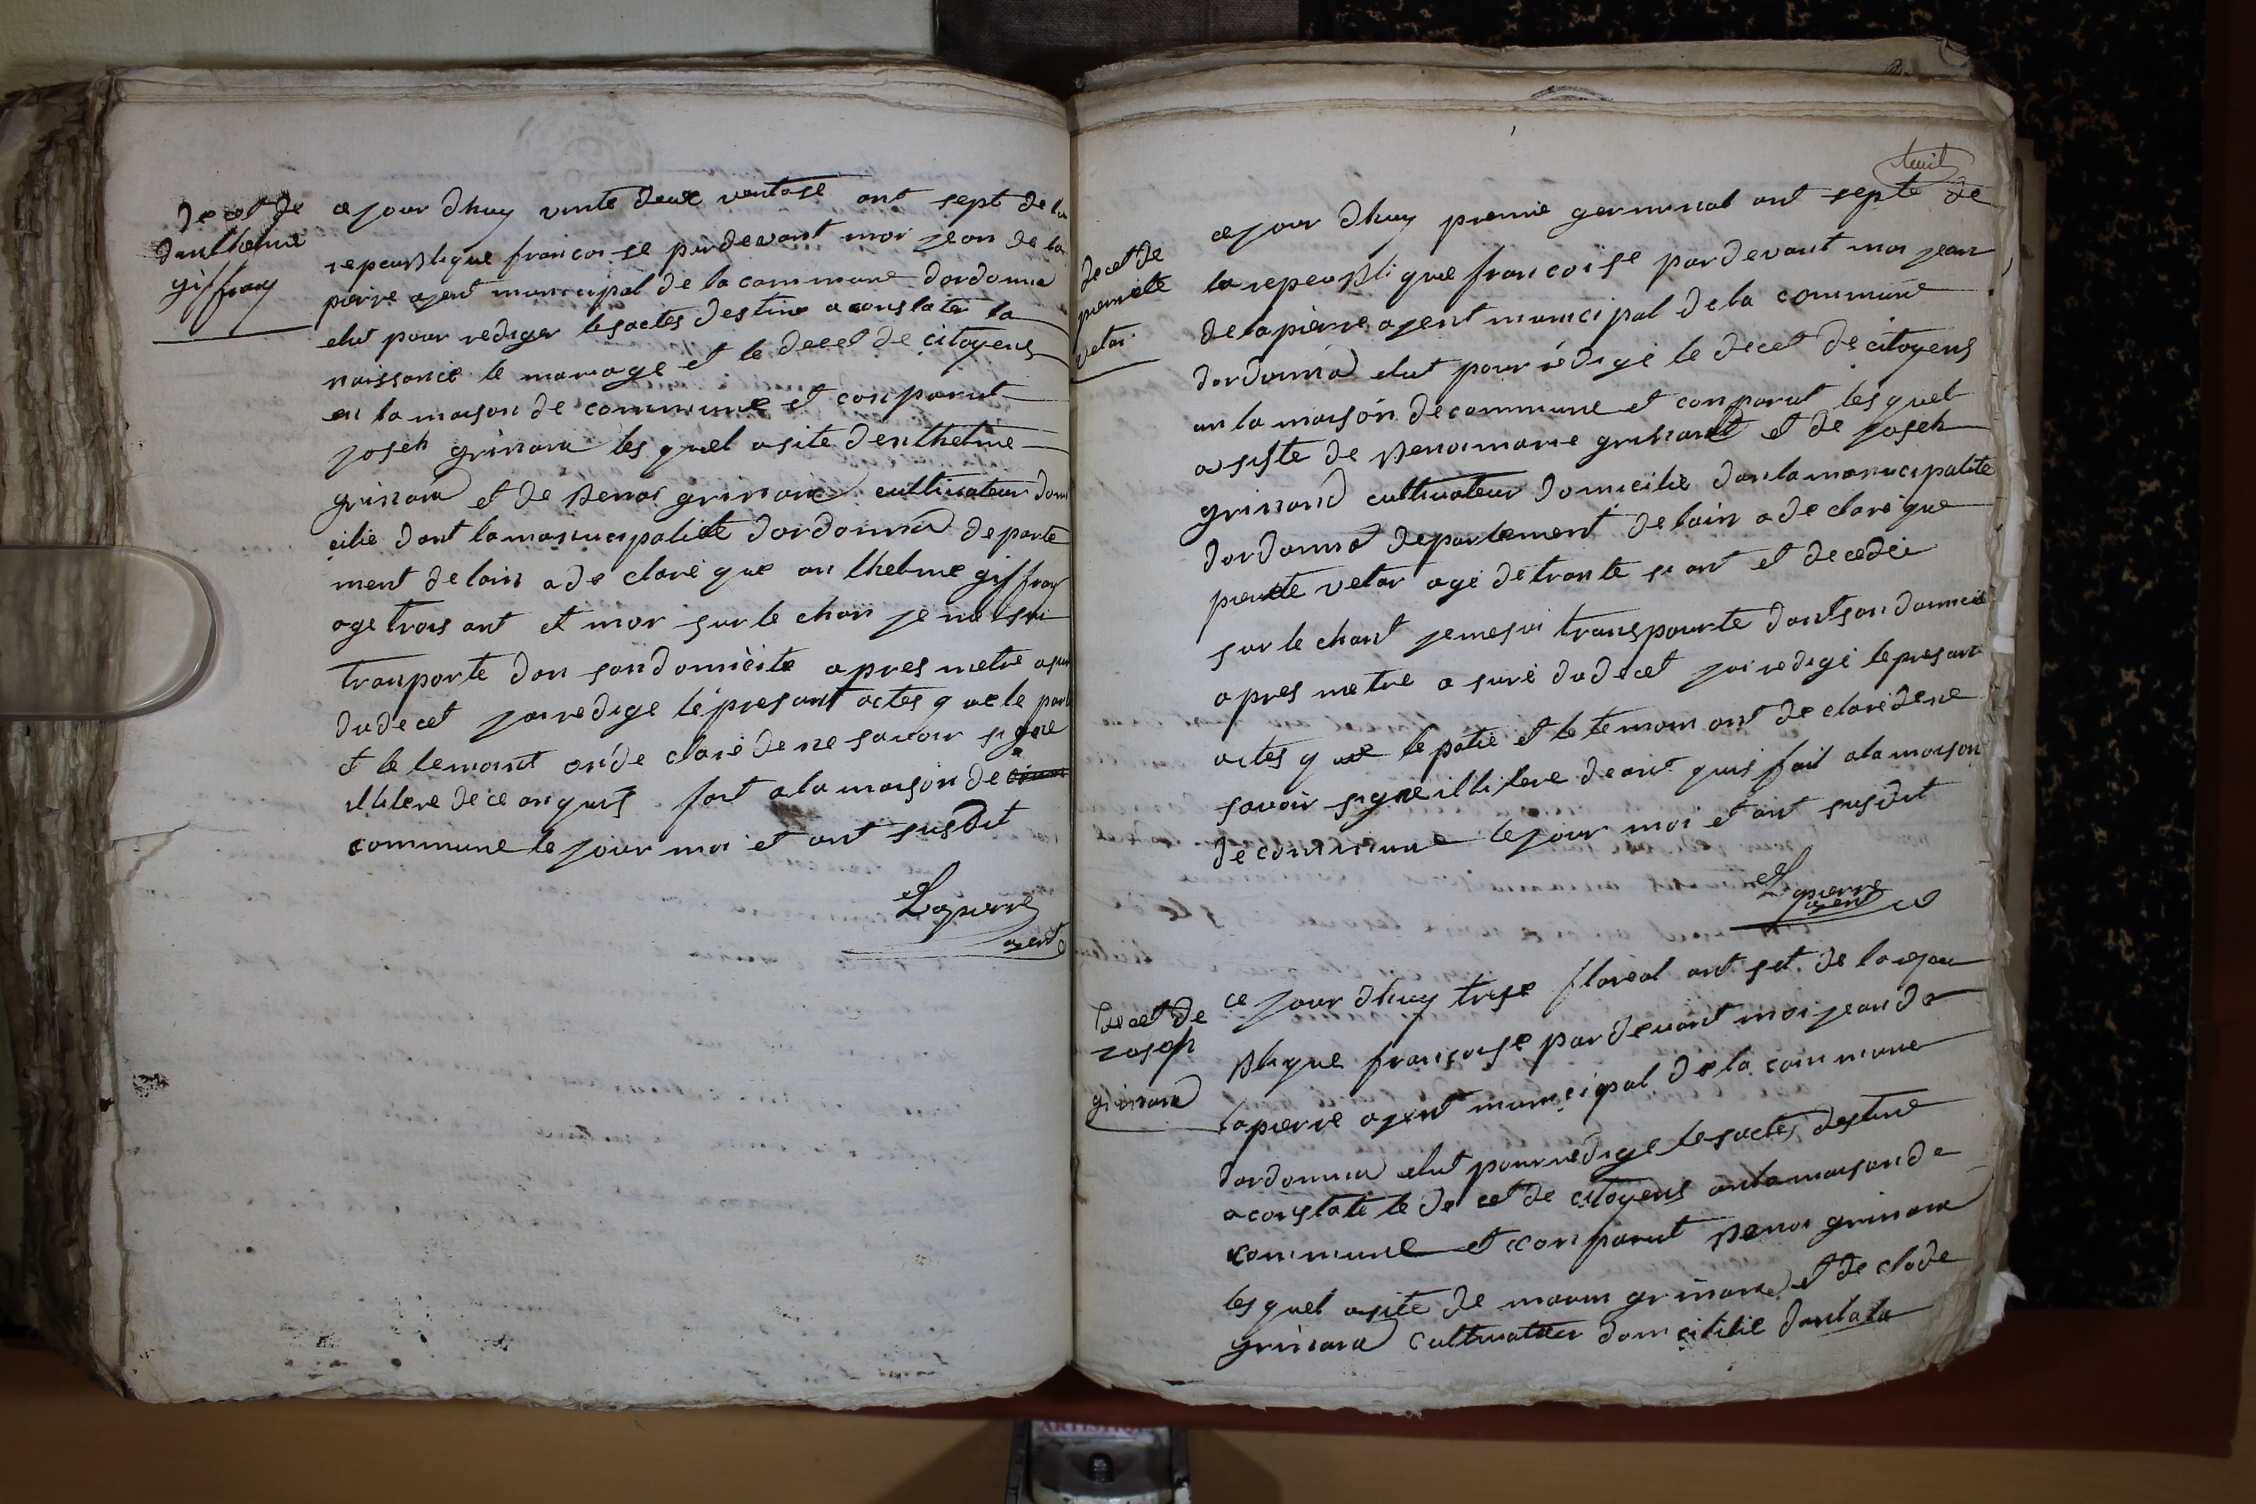 decet de
danthelme
giffray
ce jour dhuy vinte deux ventose ant sept de la
repeublique francoise pardevant moi jean de la
pairre agent municipal de la commune dordonna
elut pour rediger lesactes destine a constater la
naissance le mariage et le decet de citoyens
en la maison de commune et conparut
joseh grinand lesquel asite denthelme
grinand et de Benoi grinand cultivateur domi
cilie dant lamanucipalitte dordonna departe
ment delain a de claré que anthelme giffray
age trois ant et mor sur le chan je me sui
tranporte dan son domicite apres metre asur
dudecet jai redige lé presant actes que le parti
et le temoint on de claré de ne savoir signe
illitere de ce anquis fait a la maison de
commune le jour moi et ant susdit
Lapierre
agent
huit
decet de
pierrette
vetar
ce jour dhuy premie germinal ant septe de
la repeublique francoise pardevant moi jean
delapierre agent municipal dela commune
dordonna elut pour rédigé le decet de citoyens
an la maison de commune et conparut lesquel
asiste de Benoimarie grinand et de joseh
grinand cultivateur domicilie dan la manucipalite
dordonna departement delain a de claré que
vetar agé de trante si ant et decedée
sur le chant jemesui transpourte dant son domicile
apres metre a suré dudecet jai redigé lepresant
actes que le patie et le temoin ont de claré dene
savoir signe illitere deant quis fait alamaison
de commune le jour moi et ant susdit
Lapierre
agent
Decet de
joseph
grinand
ce jour dhuy trese floreal ant set de larepeu
blique françoise pardevant moi jean de
lapierre agent municipal de la commune
dordonna elut pour redige lesactes destine
a constate le de cet de citoyens anlamaison de
commune et conparut Benoi grinand
lesquel asite de marin grinand et de clode
grinand cultivateur domicilie danlala